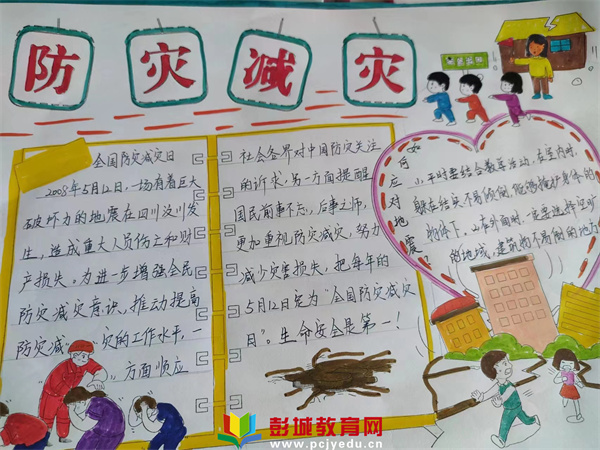 防灾减灾
全国防灾减灾日
2008年5月12日,一场有着巨大
破坏力的地震在四川汶川发
生,造成重大人员伤亡和财
产损失。为进一步增强全民
防灾减灾意识,推动提高
防灾减灾的工作水平,一
方面顺应
社会各界对中国防灾关注
的诉求,另一方面提醒
国民前事不忘,后事之师,
更加重视防灾减灾,努力
减少灾害损失,把每年的
5月12日定为“全国防灾减灾
日”。生命安全是第一!
如何应对地震?
1、平时要结合教导活动,在室内时,
躲在结实不易倾倒、能掩护身体的
物体下。2、在外面时,一定要选择空旷
的地域,建筑物不易倒的地方
彭城教育网
www.pcjyedu.cn